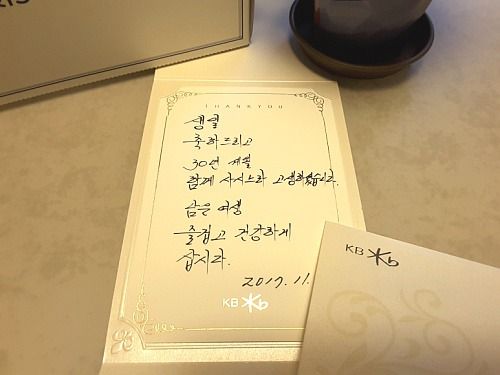 THANK YOU
생일
축하드리고
30년 세월
함께 사시느라 고생하셨습니다.
남은 여생
즐겁고 건강하게
삽시다.
2017.11.
KB
KB